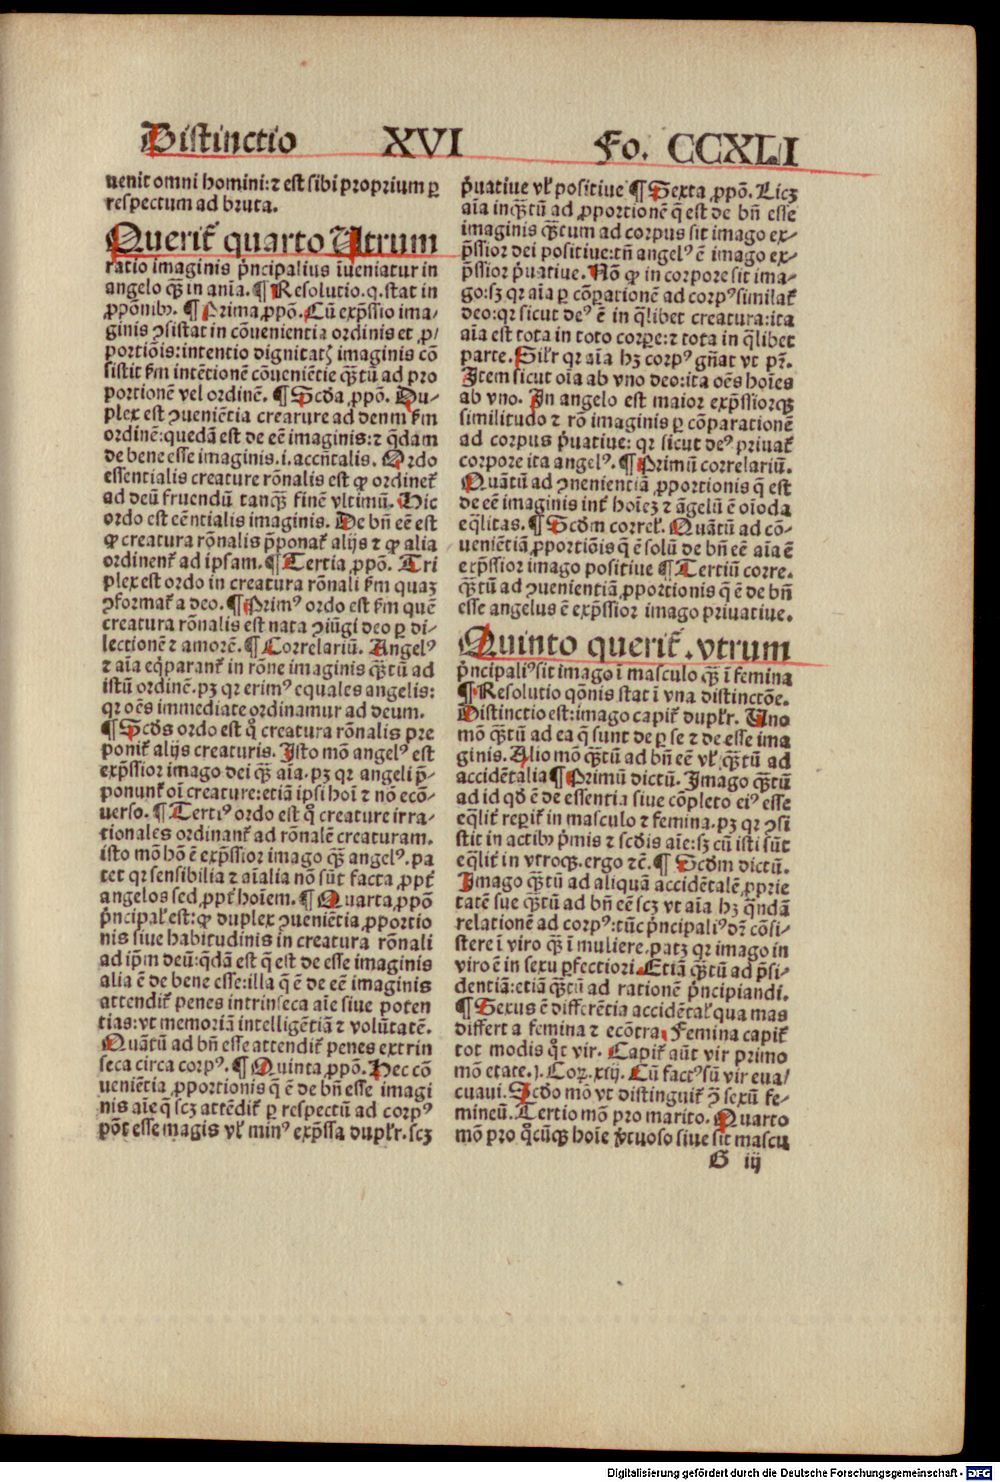 Distinctio XVI Fo. CCXLI
uenit omni homini: ⁊ est sibi proprium ꝑ
respectum ad bruta.
Querit᷑ quarto Utrum
ratio imaginis p̄ncipalius īueniatur in
angelo qꝫ̄ in anīa. ¶ Resolutio. q. stat in
ꝓpōnibꝰ. ¶ Prima ꝓpō. Cū exp̄ssio ima/
ginis ꝯsistat in cōuenientia ordinis et ꝓ/
portiōis: intentio dignitatꝭ imaginis cō
sistit ẜm intētionē cōueniētie qꝫ̄tū ad pro
portionē vel ordinē. ¶ Scd̄a ꝓpō. Du-
plex est ꝯueniētia creature ad denm ẜm
ordinē: quedā est de eē imaginis: ⁊ q̄dam
de bene esse imaginis .i. accn̄talis. Ordo
essentialis creature rōnalis est ꝙ ordinet᷑
ad deū fruendū tanqꝫ̄ finē vltimū. Hic
ordo est eēntialis imaginis. De bn̄ eē est
ꝙ creatura rōnalis p̄ponat᷑ alijs ⁊ ꝙ alia
ordinent᷑ ad ipsam. ¶ Tertia ꝓpō. Tri
plex est ordo in creatura rōnali ẜm quaꝫ
ꝯformat᷑ a deo. ¶ Primꝰ ordo est ẜm quē
creatura rōnalis est nata ꝯiūgi deo ꝑ di-
lectionē ⁊ amorē. ¶ Correlariū. Angelꝰ
⁊ aīa eq̄parant᷑ in rōne imaginis qꝫ̄tū ad
istū ordinē. pꝫ qꝛ erimꝰ equales angelis:
qꝛ oēs immediate ordinamur ad deum.
¶ Scd̄s ordo est q̊ creatura rōnalis pre
ponit᷑ alijs creaturis. Isto mō angelꝰ est
exp̄ssior imago dei qꝫ̄ aīa. pꝫ qꝛ angeli p̄-
ponunt᷑ oī creature: etiā ipsi hoī ⁊ nō ecō-
uerso. ¶ Tertiꝰ ordo est q̊ creature irra-
tionales ordinant᷑ ad rōnalē creaturam.
isto mō hō ē exp̄ssior imago qꝫ̄ angelꝰ. pa
tet qꝛ sensibilia ⁊ aīalia nō sūt facta ꝓpt᷑
angelos sed ꝓpt᷑ hoīem. ¶ Quarta ꝓpō
p̄ncipal᷑ est: ꝙ duplex ꝯueniētia ꝓportio
nis siue habitudinis in creatura rōnali
ad ip̄m deū: qd̄ā est q̄ est de esse imaginis
alia ē de bene esse: illa q̄ ē de eē imaginis
attendit᷑ penes intrinseca aīe siue poten
tias: vt memoriā intelligētiā ⁊ volūtatē.
Quātū ad bn̄ esse attendit᷑ penes extrin
seca circa corpꝰ. ¶ Quinta ꝓpō. Hec cō
ueniētia ꝓportionis q̄ ē de bn̄ esse imagi
nis aīe q̄ scꝫ attēdit᷑ ꝑ respectū ad corpꝰ
pōt esse magis vl᷑ minꝰ exp̄ssa dupl᷑r. scꝫ
p̄uatiue vl᷑ positiue ¶ Sexta ꝓpō. Licꝫ
aīa inqꝫ̄tū ad ꝓportionē q̄ est de bn̄ esse
imaginis qꝫ̄tum ad corpus sit imago ex-
p̄ssior dei positiue: tn̄ angelꝰ ē imago ex-
p̄ssior p̄uatiue. Nō ꝙ in corpore sit ima-
go: sꝫ qꝛ aīa ꝑ cōꝑationē ad corpꝰ similat᷑
deo: qꝛ sicut deꝰ ē in q̄libet creatura: ita
aīa est tota in toto corpore: ⁊ tota in q̄libet
parte. Sil᷑r qꝛ aīa hꝫ corpꝰ gn̄at vt pꝫ.
Item sicut oīa ab vno deo: ita oēs hoīes
ab vno. In angelo est maior exp̄ssiorqꝫ
similitudo ⁊ rō imaginis ꝑ cōparationē
ad corpus p̄uatiue: qꝛ sicut deꝰ priuat᷑
corpore ita angelꝰ. ¶ Primū correlariū.
Quātū ad ꝯnenientiā ꝓportionis q̄ est
de eē imaginis int᷑ hoīeꝫ ⁊ āgelū ē oīoda
eq̄litas. ¶ Scd̄m correl᷑. Quātū ad cō-
ueniētiā ꝓportiōis q̄ ē solū de bn̄ eē aīa ē
exp̄ssior imago positiue ¶ Tertiū corre.
qꝫ̄tū ad ꝯuenientiā ꝓportionis q̄ ē de bn̄
esse angelus ē exp̄ssior imago priuatiue.
Quinto querit᷑ . vtrum
p̄ncipaliꝰ sit imago ī masculo qꝫ̄ ī femina
¶ Resolutio qōnis stat ī vna distinctōe.
Distinctio est: imago capit᷑ dupl᷑r. Uno
mō qꝫ̄tū ad ea q̄ sunt de ꝑ se ⁊ de esse ima
ginis. Alio mō qꝫ̄tū ad bn̄ eē vl᷑ qꝫ̄tū ad
accidētalia ¶ Primū dictū. Imago qꝫ̄tū
ad id qd̄ ē de essentia siue cōpleto eiꝰ esse
eq̄lit᷑ reꝑit᷑ in masculo ⁊ femina. pꝫ qꝛ ꝯsi
stit in actibꝰ p̄mis ⁊ scd̄is aīe: sꝫ cū isti sūt
eq̄lit᷑ in vtroqꝫ. ergo ⁊c̄. ¶ Scd̄m dictū.
Imago qꝫ̄tū ad aliquā accidētalē ꝓprie
tatē sue qꝫ̄tū ad bn̄ eē scꝫ vt aīa hꝫ q̄ndā
relationē ad corpꝰ: tūc p̄ncipaliꝰ dꝛ̄ cōsi-
stere ī viro qꝫ̄ ī muliere. patꝫ qꝛ imago in
viro ē in sexu ꝑfectiori. Etiā qꝫ̄tū ad p̄si-
dentiā: etiā qꝫ̄tū ad rationē p̄ncipiandi.
¶ Sexus ē differētia accidētal᷑ qua mas
differt a femina ⁊ ecōtra. Femina capit᷑
tot modis q̊t vir. Capit᷑ aūt vir primo
mō etate. j. Coꝝ. xiij. Cū factꝰ sū vir eua/
cuaui. Scd̄o mō vt distinguit᷑ ꝯ̄ sexū fe-
mineū. Tertio mō pro marito. Quarto
mō pro q̊cūqꝫ hoīe v̓tuoso siue sit mascu
G iij
Digitalisierung gefördert durch die Deutsche Forschungsgemeinschaft - DFG